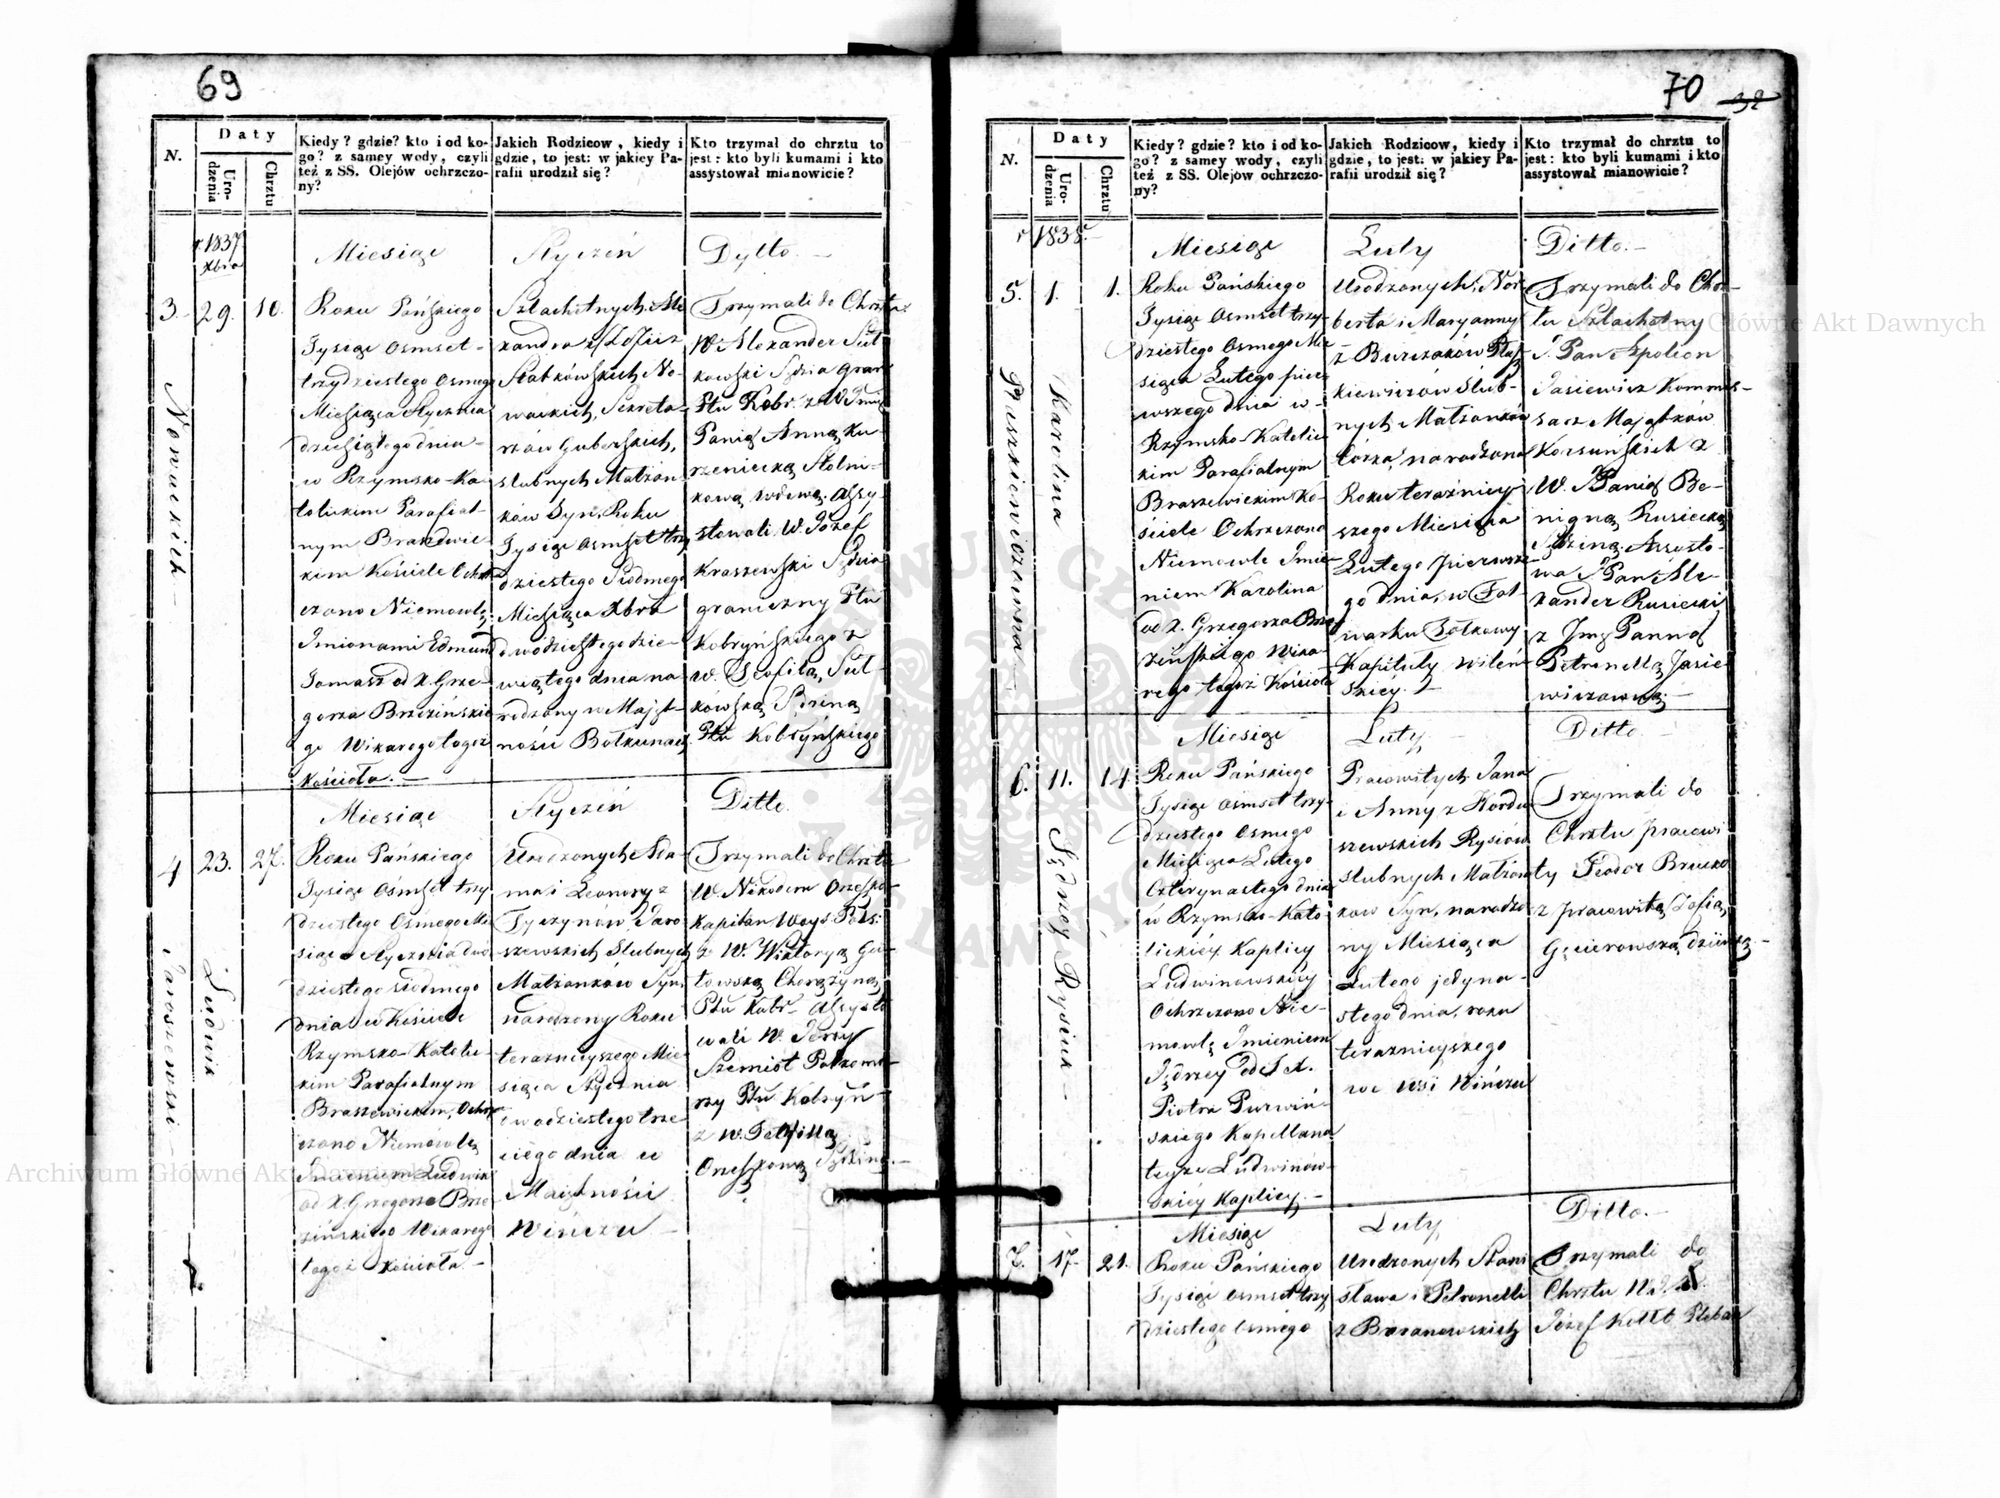 69
N.
Daty
Urodzenia
Chrztu
Kiedy? gdzie? kto i od ko-
go? z samey wody, czyli
też z SS. Olejów ochrzczo-
ny?
Jakich Rodzicow, kiedy i
gdzie, to jest: w jakiey Pa-
rafii urodził się?
Kto trzymał do chrztu to
jest: kto byli kumami i kto
assystował mianowicie?
r. 1837
Xbra
Miesiąc
Styczeń
Dytto.
3.
29.
10.
Nowackich
Roku Pańskiego
Tysiąc Osmset
trzydziestego Osmego
Miesiąca Stycznia
dziesiątego dnia
w Rzymsko-Ka
tolickim Parafial
nym Braszewic
kim Kościele Ochrz
czono Niemowlę
Imionami Edmund
Tomasz od X. Grze-
gorza Brzezińskie
go Wikarego tegoż
Kościoła.
Szlachetnych Ale
xandra i Zofii z
Słabkowskich No-
wackich, Sekreta-
rzów Guberskich,
slubnych Małżon
ków Syn, Roku
Tysiąc Osmset trzy
dziestego Siódmego
Miesiąca Xbra
dwódziestego dzie-
wiątego dnia na
rodzony w Majęt-
ności Bolkunach
Trzymali do Chrztu
W. Alexander Sul
kowski Sędzia gran
Ptu Kobr. z W Jmć
Panią Anną Ku
rzeniecką Stolni-
kową wdową. Assy-
stowali W. Józef
Kraszewski Sędzia
graniczny Ptu
Kobryńskiego z
W. Teofilą Sul-
kowską Sędziną
Ptu Kobryńskiego
Miesiąc
Styczeń
Ditto.
4
23.
27.
Ludwik
Jaroszewski
Roku Pańskiego
Tysiąc Ośmset trzy
dziestego Osmego Mie
siąca Stycznia dwó
dziestego siódmego
dnia w Kościele
Rzymsko-Katolic-
kim Parafialnym
Braszewickim, Ochrz
czono Niemowlę
Imieniem Ludwik
od X. Grzegorza Brze
zińskiego Wikarego
tegoż Kościoła
Urodzonych Ada-
ma i Leonory z
Tyczynów Jaro
szewskich Slubnych
Małżonków Syn,
narodzony Roku
teraznieyszego Mie-
siąca Stycznia
dwódziestego trze
ciego dnia w
Majętności
Wińczu
Trzymali do Chrztu
W. Nikodem Orzeszko
Kapitan Woys Pols:
z W. Wiktoryą Gu-
towską Chorążyną
Ptu Kobr. Assysto
wali W. Jerzy
Szemiot Podkomo-
rzy Ptu Kobryń-
z W. Teofilą
Orzeszkową Sędziną.
70
32
N.
Daty
Urodzenia
Chrztu
Kiedy? gdzie? kto i od ko-
go? z samey wody, czyli
też z SS. Olejów ochrzczo-
ny?
Jakich Rodzicow, kiedy i
gdzie, to jest: w jakiey Pa-
rafii urodził się?
Kto trzymał do chrztu to
jest: kto byli kumami i kto
assystował mianowicie?
r 1838.
Miesiąc
Luty
Ditto.
5.
1.
1.
Karolina
Roku Pańskiego
Tysiąc Osmset trzy-
dziestego Osmego Mie
siąca Lutego pier-
wszego dnia w
Rzymsko-Katolic
kim Parafialnym
Braszewickim Ko-
ściele Ochrzczono
Niemowle Imie-
niem Karolina
od X. Grzegorza Brze
zińskiego Wika-
rego tegoż Kościoła
Urodzonych Nor
berta i Maryanny
z Burzaków
kiewiczów Slub-
nych Małżonków
Córka, narodzona
Roku teraźniey
szego Miesiąca
Lutego pierwsze
go dnia, w Fol-
warku Zołkowy
Kapituły wileń
skiey.
Trzymali do Chrz-
tu Szlachetny
J. Pan Apolion
Jasiewicz Kommis-
sarz Majątków
Korsuńskich z
W. JPanią Be-
nigną Rusiecką
Sędziną. Assysto-
wał JPan Ale-
xander Rusiecki
z Jmć Panną
Petronellą Jasie
wiczowną.
Miesiąc
Luty
Ditto
6.
11.
14
Jędrzey Rysiuk
Roku Pańskiego
Tysiąc Osmset trzy-
dziestego Osmego
Miesiąca Lutego
Czternastego dnia
w Rzymsko-Kato
lickiéy Kaplicy
Ludwinowskiey
Ochrzczono Nie-
mowlę Imieniem
Jędrzey od X.
Piotra Purwiń-
skiego Kapellana
teyże Ludwinow-
skiéy Kaplicy.
Pracowitych Jana
i Anny z Kordu
szewskich Rysiów
slubnych Małżon
ków Syn, narodzo
ny Miesiąca
Lutego jedyna-
stego dnia, roku
teraznieyszego
we wsi Wińczu
Trzymali do
Chrztu pracowi
ty Teodor Bruczko
z pracowitą Zofią
Miesiąc
Luty
Ditto.
7.
17.
21.
Roku Pańskiego
Tysiąc osmset trzy
dziestego osmego
Urodzonych Stani
sława i Petronelli
z Baranowskich
Trzymali do
Chrztu
Józef Kołłb Pleban
Archiwum Główne Akt Dawnych
Archiwum Główne Akt Dawnych
ARCHIWUM GŁÓWNE AKT DAWNYCH